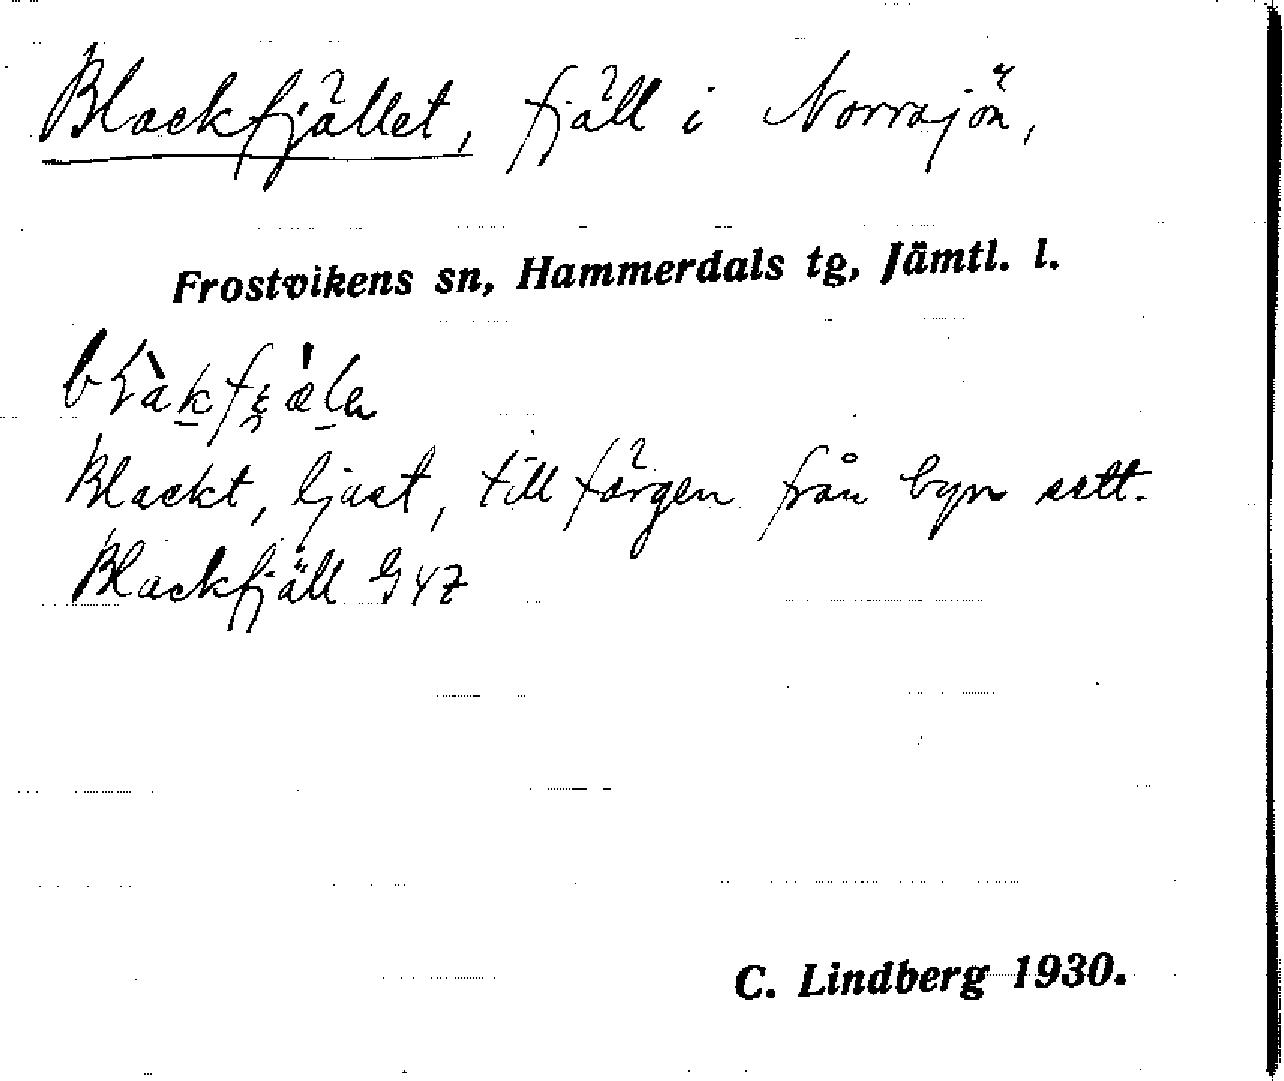 Blackfjället, fjäll i Norrsjön,
Frostvikens sn, Hammerdals tg, Jämtl. l.
Blackt, ljust, till färgen från byn sett.
Blackfjäll G4Z
C. Lindberg 1930.